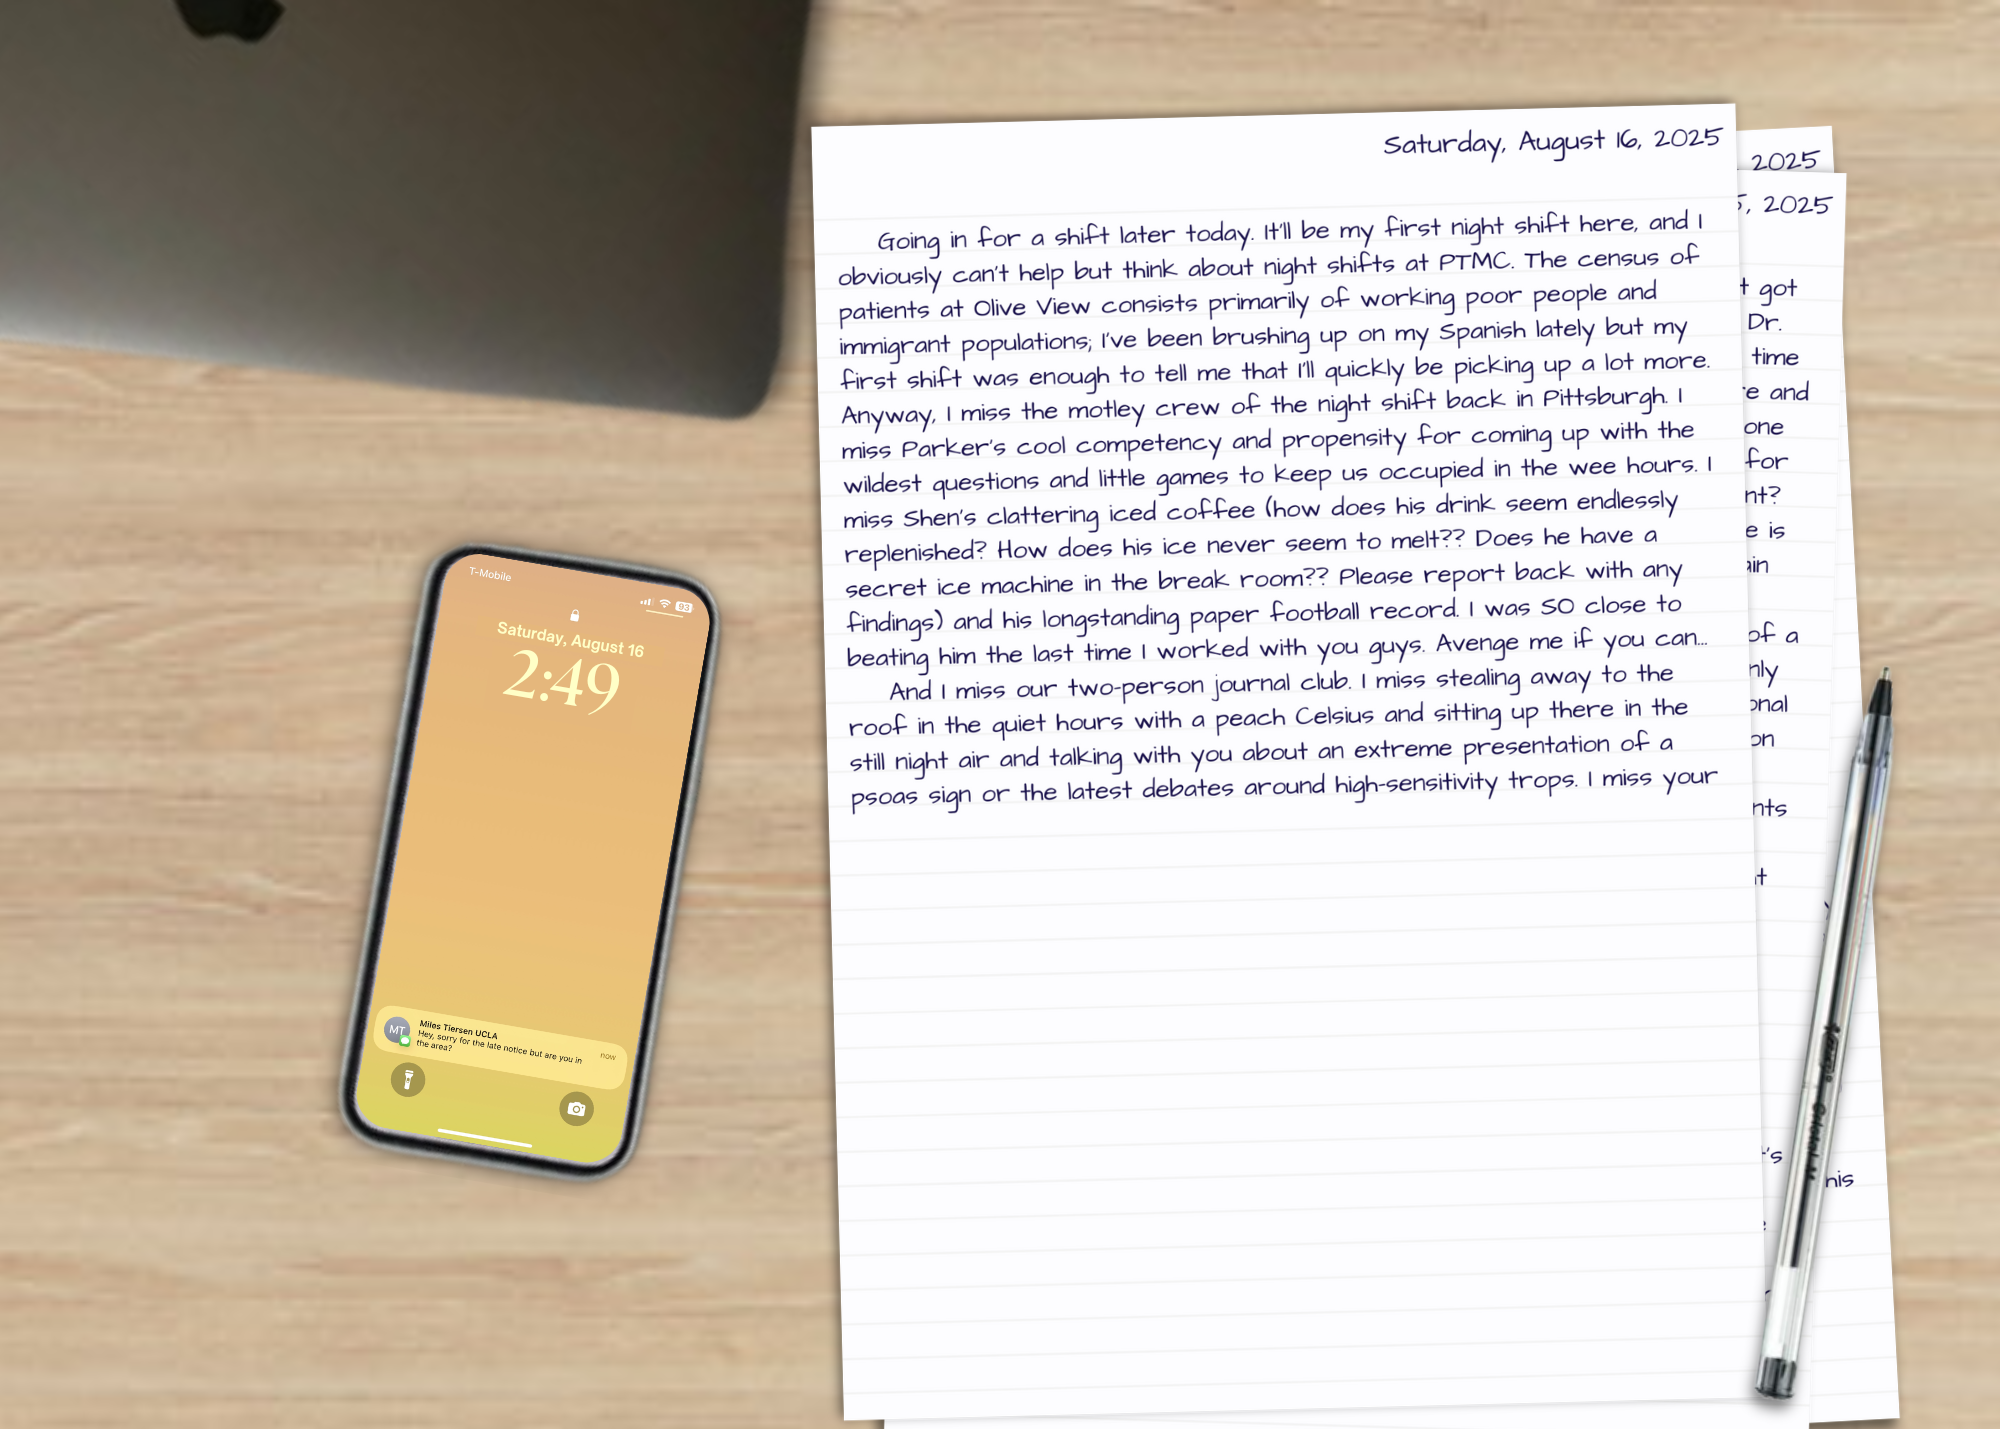 Saturday, August 16, 2025
Going in for a shift later today. It'll be my first night shift here, and I
obviously can't help but think about night shifts at PTMC. The census of
patients at Olive View consists primarily of working poor people and
immigrant populations; I've been brushing up on my Spanish lately but my
first shift was enough to tell me that I'll quickly be picking up a lot more.
Anyway, I miss the motley crew of the night shift back in Pittsburgh. I
miss Parker's cool competency and propensity for coming up with the
wildest questions and little games to keep us occupied in the wee hours. I
miss Shen's clattering iced coffee (how does his drink seem endlessly
replenished? How does his ice never seem to melt?? Does he have a
secret ice machine in the break room?? Please report back with any
findings) and his longstanding paper football record. I was SO close to
beating him the last time I worked with you guys. Avenge me if you can...
And I miss our two-person journal club. I miss stealing away to the
roof in the quiet hours with a peach Celsius and sitting up there in the
still night air and talking with you about an extreme presentation of a
psoas sign or the latest debates around high-sensitivity trops. I miss your
2025
5, 2025
t got
Dr.
time
e and
one
for
nt?
e is
ain
of a
nly
onal
on
nts
it
's
his
T-Mobile
93
Saturday, August 16
2:49
MT
Miles Tiersen UCLA
now
Hey, sorry for the late notice but are you in
the area?